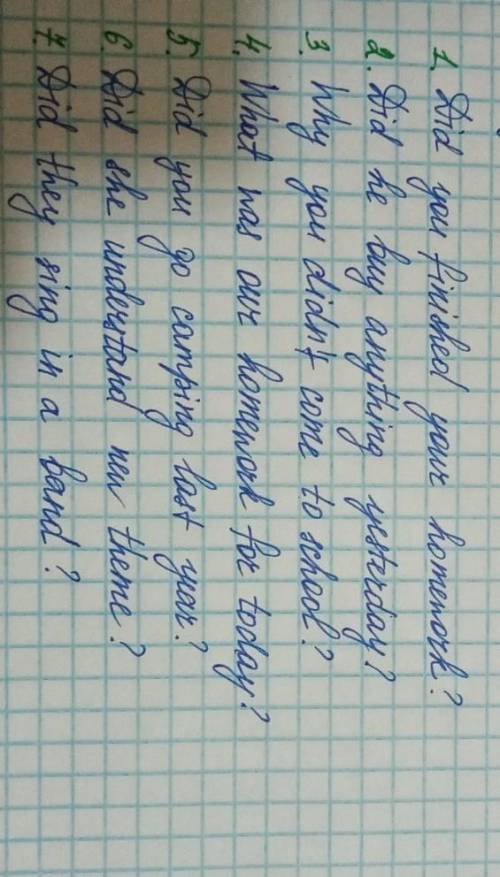 1. Did you finished your homework?
2. Did he buy anything yesterday?
3. Why you didn't come to school?
4. What was our homework for today?
5. Did you go camping last year?
6. Did she understand new theme?
7. Did they sing in a band?